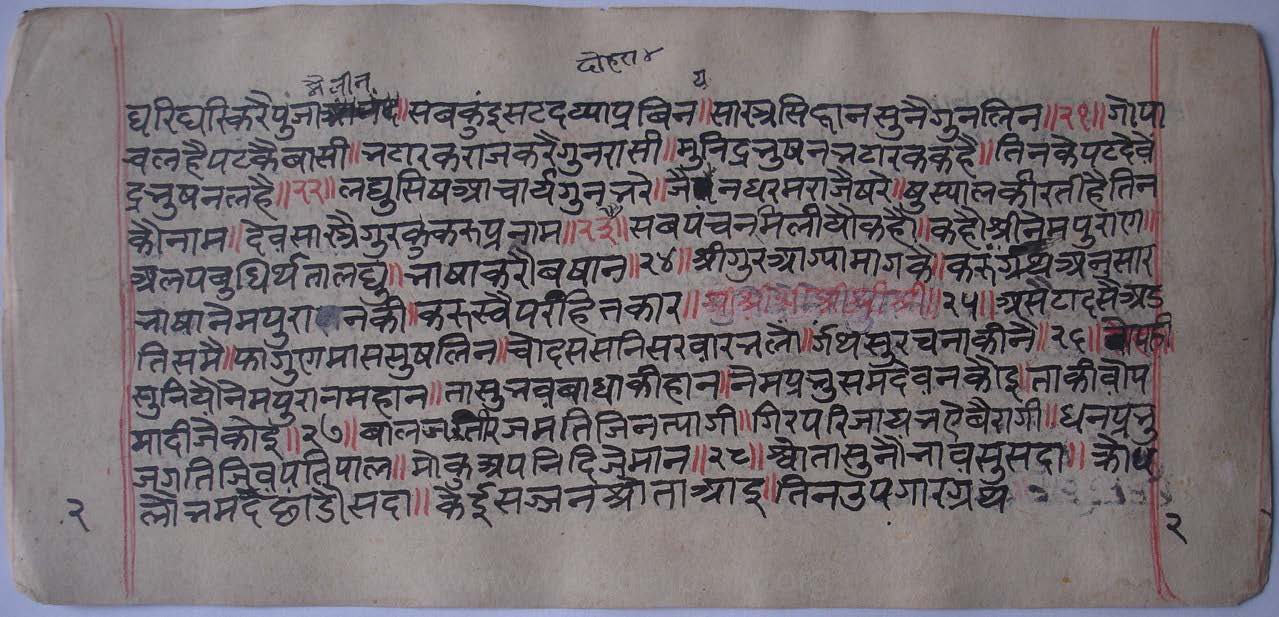 दोहरा ४
घरिघरिकरैपुंजा॥सबकुंइसटदव्याप्रबिन॥सास्त्रसिद्दानसुनैगुनलिन॥२१॥गोपा
चलहैपटकैबासी॥भटारकराजकरैगुनरासी॥मुनिद्रभुषनभटारककहै॥तिनकैपटदेवें
द्रभुषनलहै॥२२॥लघुसिषआचार्यगुनभरे॥जैनधरमराजैषरे॥षुस्यालकीरतीहैतिन
कौनाम॥देवसास्त्रैगुरकुकरुप्रनाम॥२३॥सबपंचनमिलीयौकहौ॥कहौश्रीनेमपुराण॥
अलपबुधिर्थतालघु॥भाषाकरौबषान॥२४॥श्रीगुरआग्यामागकें॥करुंग्रंथअनुसार
भाषानेमपुरानकी॥करुस्वैपरहितकार॥श्रीश्रीश्रीश्रीश्रीश्री॥२५॥असैटादसैअड
तिसमै॥फागुणमाससुषलिन॥चोदससनिसरवारभलो॥ग्रंथसुरचनाकीनै॥२६॥चौपही
सुनियौनेमपुरानमहान॥तासुभवबाधाकीहान॥नेमप्रभुसमदेवनकौइ॥ताकीवोप
मादीजैकौइ॥२७॥बालजतीरजमतिजिनत्यागी॥गिरपरिजायभऐबैरागी॥धनप्रभु
जगतिजिवपतिपाल॥मोकुअपनिदिजैमान॥२८॥श्रोतासुनौभावसुसदा॥क्रोध
लोभमदछांडौसदा॥कैईसज्जनश्रौताआइ॥तिनउपगारग्रंथ
२
२